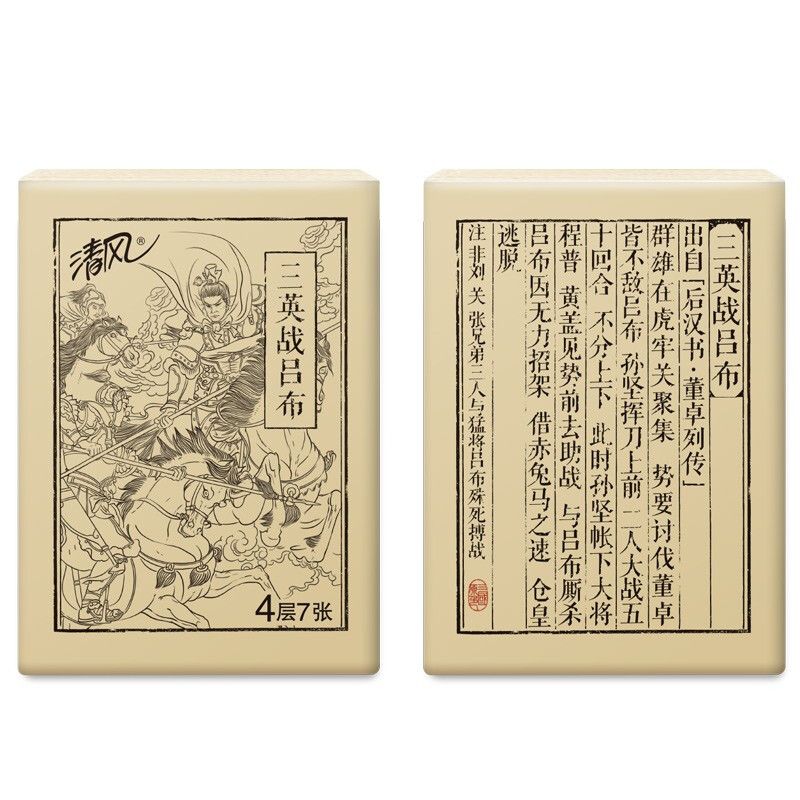 清风®
三英战吕布
4层7张
三英战吕布
出自「后汉书·董卓列传」
群雄在虎牢关聚集 势要讨伐董卓
皆不敌吕布 孙坚挥刀上前 二人大战五
十回合 不分上下 此时孙坚帐下大将
程普 黄盖见势前去助战 与吕布厮杀
吕布因无力招架 借赤兔马之速 仓皇
逃脱
注 非刘 关 张兄弟三人与猛将吕布殊死搏战